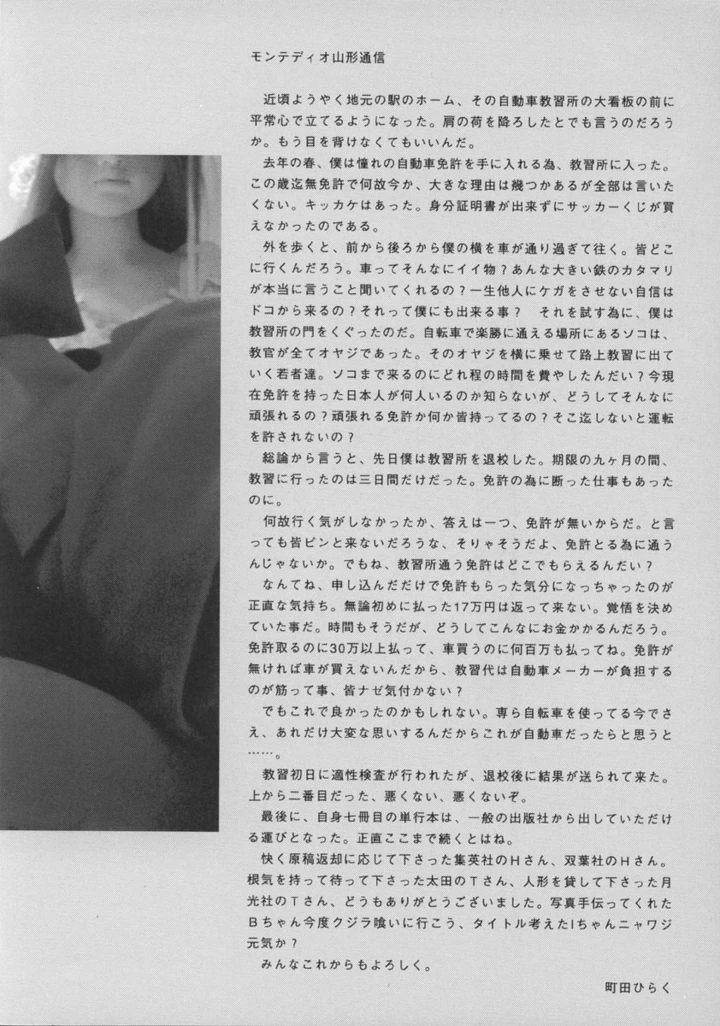 モンテディオ山形通信
　近頃ようやく地元の駅のホーム、その自動車教習所の大看板の前に
平常心で立てるようになった。肩の荷を降ろしたとでも言うのだろう
か。もう目を背けなくてもいいんだ。
　去年の春、僕は憧れの自動車免許を手に入れる為、教習所に入った。
この歳迄無免許で何故今か、大きな理由は幾つかあるが全部は言いた
くない。キッカケはあった。身分証明書が出来ずにサッカーくじが買
えなかったのである。
　外を歩くと、前から後ろから僕の横を車が通り過ぎて往く。皆どこ
に行くんだろう。車ってそんなにイイ物？あんな大きい鉄のカタマリ
が本当に言うこと聞いてくれるの？一生他人にケガをさせない自信は
ドコから来るの？それって僕にも出来る事？　それを試す為に、僕は
教習所の門をくぐったのだ。自転車で楽勝に通える場所にあるソコは、
教官が全てオヤジであった。そのオヤジを横に乗せて路上教習に出て
いく若者達。ソコまで来るのにどれ程の時間を費やしたんだい？今現
在免許を持った日本人が何人いるのか知らないが、どうしてそんなに
頑張れるの？頑張れる免許か何か皆持ってるの？そこ迄しないと運転
を許されないの？
　総論から言うと、先日僕は教習所を退校した。期限の九ヶ月の間、
教習に行ったのは三日間だけだった。免許の為に断った仕事もあった
のに。
　何故行く気がしなかったか、答えは一つ、免許が無いからだ。と言
っても皆ピンと来ないだろうな、そりゃそうだよ、免許とる為に通う
んじゃないか。でもね、教習所通う免許はどこでもらえるんだい？
　なんてね、申し込んだだけで免許もらった気分になっちゃったのが
正直な気持ち。無論初めに払った17万円は返って来ない。覚悟を決め
ていた事だ。時間もそうだが、どうしてこんなにお金かかるんだろう。
免許取るのに30万以上払って、車買うのに何百万も払ってね。免許が
無ければ車が買えないんだから、教習代は自動車メーカーが負担する
のが筋って事、皆ナゼ気付かない？
　でもこれで良かったのかもしれない。専ら自転車を使ってる今でさ
え、あれだけ大変な思いするんだからこれが自動車だったらと思うと
……。
　教習初日に適性検査が行われたが、退校後に結果が送られて来た。
上から二番目だった、悪くない、悪くないぞ。
　最後に、自身七冊目の単行本は、一般の出版社から出していただけ
る運びとなった。正直ここまで続くとはね。
　快く原稿返却に応じて下さった集英社のＨさん、双葉社のＨさん。
根気を持って待って下さった太田のＴさん、人形を貸して下さった月
光社のＴさん、どうもありがとうございました。写真手伝ってくれた
Ｂちゃん今度クジラ喰いに行こう、タイトル考えたIちゃんニャワジ
元気か？
　みんなこれからもよろしく。
町田ひらく